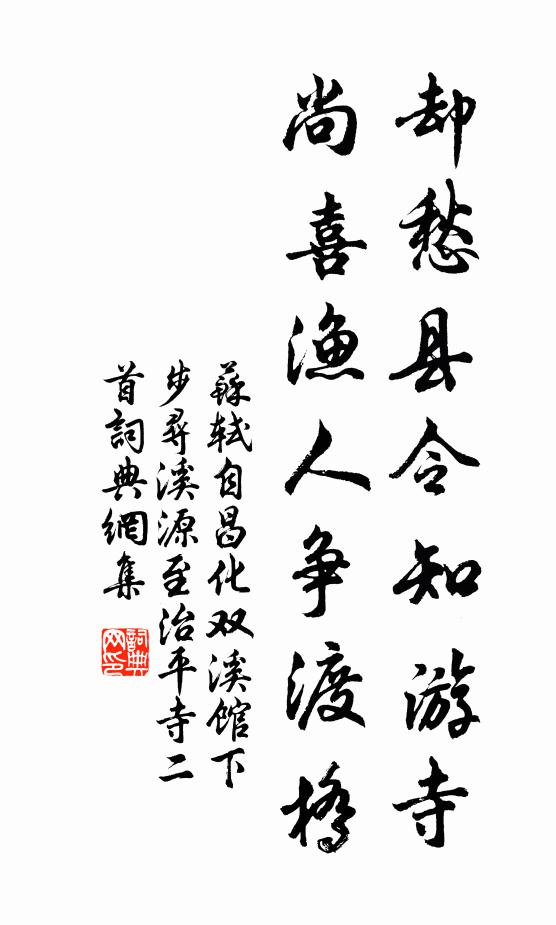 却愁县令知游寺
尚喜漁人争渡橋
蘇軾自昌化双溪館下
步尋溪源至治平寺二
首詞典網集
詞典网印